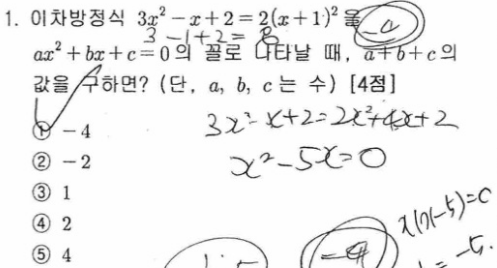 1. 이차방정식 3x²-x+2=2(x+1)²을
3-1+2=8
-4
ax²+bx+c=0의 꼴로 나타날 때, a+b+c의
값을 구하면? (단, a, b, c는 수) [4점]
① -4
3x²-x+2=2x²+4x+2
② -2
x²-5x=0
③ 1
④ 2
x(x-5)=0
⑤ 4
-4
-5.